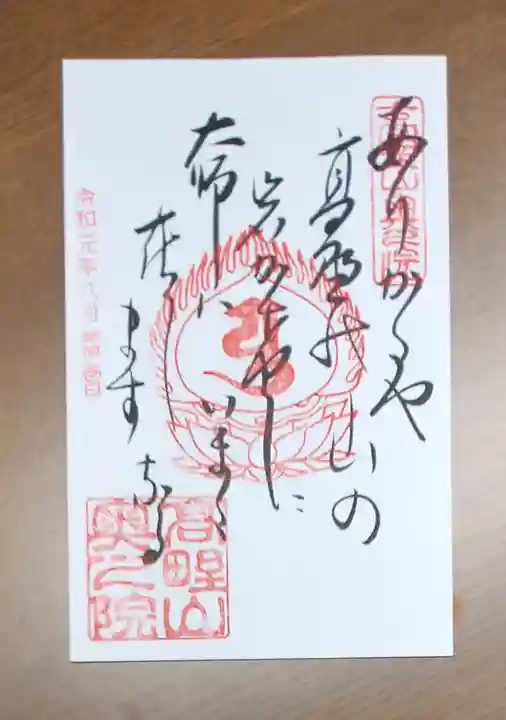 高野山奥之院
ありかたや
高野の山の
岩かけに
大師はいまた
在し
ます なる
令和元年八月
高野山
奥之院